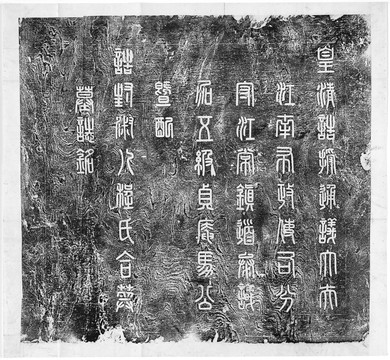 皇清誥授通議大夫
江南布政使司分
守江常鎮道參議
加五級貞庵馬公
暨配
誥封淑人氏合葬
墓誌銘